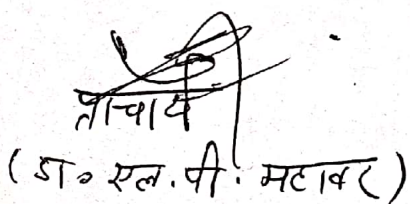 प्राचार्य
(डा० एल.पी. महावर)